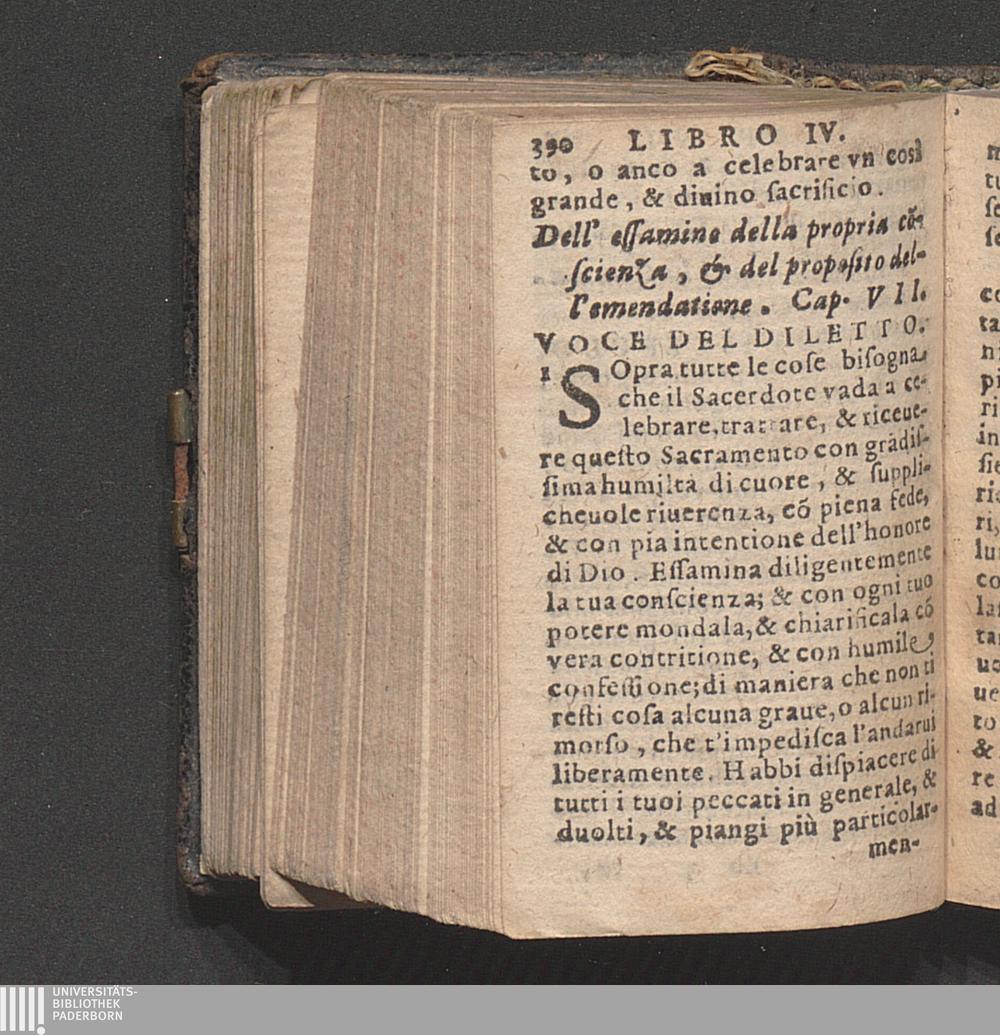 390 LIBRO IV.
to, o anco a celebrare vn così
grande, & diuino ſacrificio.
Dell' eſſamine della propria cõ-
ſcienza, & del propoſito del-
l'emendatione. Cap. VII.
VOCE DEL DILETTO.
1 SOpra tutte le coſe biſogna,
che il Sacerdote vada a ce-
lebrare, trattare, & riceue-
re queſto Sacramento con grãdiſ-
ſima humiltà di cuore, & ſuppli-
cheuole riuerenza, cõ piena fede,
& con pia intentione dell'honore
di Dio. Eſſamina diligentemente
la tua conſcienza; & con ogni tuo
potere mondala, & chiarificala cõ
vera contritione, & con humile
confeſſione; di maniera che non ti
reſti coſa alcuna graue, o alcun ri-
morſo, che t'impediſca l'andarui
liberamente. Habbi diſpiacere di
tutti i tuoi peccati in generale, &
duolti, & piangi più particolar-
men-
UNIVERSITÄTS-
BIBLIOTHEK
PADERBORN